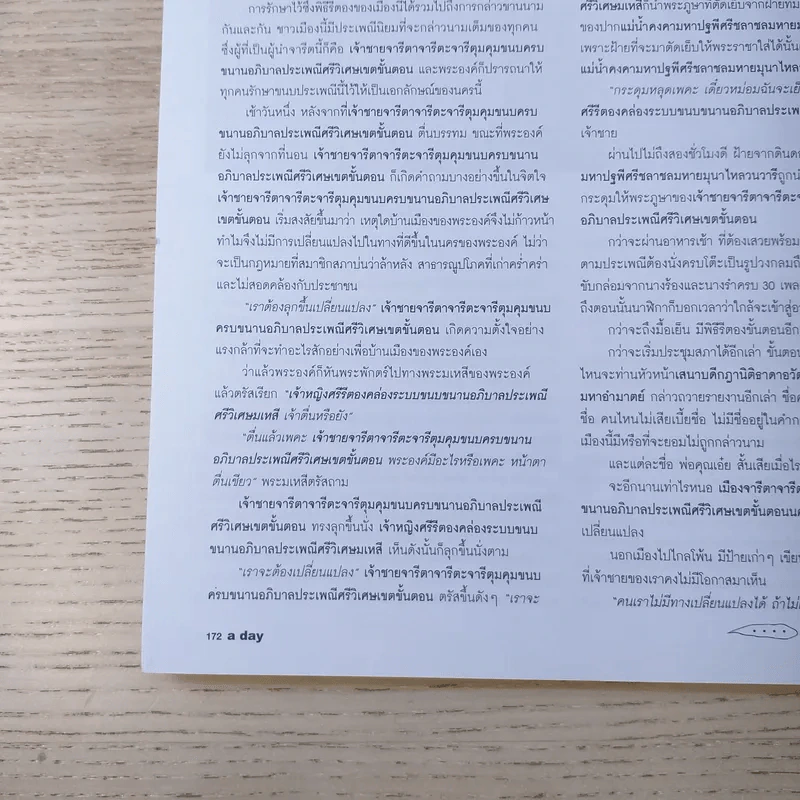 การรักษาไว้ซึ่งพิธีรีตองของเมืองนี้ได้รวมไปถึงการกล่าวขานนาม
กันและกัน ชาวเมืองนี้มีประเพณีนิยมที่จะกล่าวนามเต็มของทุกคน
ซึ่งผู้ที่เป็นผู้นำจารีตนี้ก็คือ เจ้าชายจารีตาจารีตะจารีตุมคุมขนบครบ
ขนานอภิบาลประเพณีศรีวิเศษเขตขั้นตอน และพระองค์ก็ปรารถนาให้
ทุกคนรักษาขนบประเพณีนี้ไว้ให้เป็นเอกลักษณ์ของนครนี้
เช้าวันหนึ่ง หลังจากที่เจ้าชายจารีตาจารีตะจารีตุมคุมขนบครบ
ขนานอภิบาลประเพณีศรีวิเศษเขตขั้นตอน ตื่นบรรทม ขณะที่พระองค์
ยังไม่ลุกจากที่นอน เจ้าชายจารีตาจารีตะจารีตุมคุมขนบครบขนาน
อภิบาลประเพณีศรีวิเศษเขตขั้นตอน ก็เกิดคำถามบางอย่างขึ้นในจิตใจ
เจ้าชายจารีตาจารีตะจารีตุมคุมขนบครบขนานอภิบาลประเพณีศรีวิเศษ
เขตขั้นตอน เริ่มสงสัยขึ้นมาว่า เหตุใดบ้านเมืองของพระองค์จึงไม่ก้าวหน้า
ทำไมจึงไม่มีการเปลี่ยนแปลงไปในทางที่ดีขึ้นในนครของพระองค์ ไม่ว่า
จะเป็นกฎหมายที่สมาชิกสภาบ่นว่าล้าหลัง สาธารณูปโภคที่เก่าคร่ำคร่า
และไม่สอดคล้องกับประชาชน
"เราต้องลุกขึ้นเปลี่ยนแปลง" เจ้าชายจารีตาจารีตะจารีตุมคุมขนบ
ครบขนานอภิบาลประเพณีศรีวิเศษเขตขั้นตอน เกิดความตั้งใจอย่าง
แรงกล้าที่จะทำอะไรสักอย่างเพื่อบ้านเมืองของพระองค์เอง
ว่าแล้วพระองค์ก็หันพระพักตร์ไปทางพระมเหสีของพระองค์
แล้วตรัสเรียก "เจ้าหญิงศรีรีตองคล่องระบบขนบขนานอภิบาลประเพณี
ศรีวิเศษมเหสี เจ้าตื่นหรือยัง"
"ตื่นแล้วเพคะ เจ้าชายจารีตาจารีตะจารีตุมคุมขนบครบขนาน
อภิบาลประเพณีศรีวิเศษเขตขั้นตอน พระองค์มีอะไรหรือเพคะ หน้าตา
ตื่นเชียว" พระมเหสีตรัสถาม
เจ้าชายจารีตาจารีตะจารีตุมคุมขนบครบขนานอภิบาลประเพณี
ศรีวิเศษเขตขั้นตอน ทรงลุกขึ้นนั่ง เจ้าหญิงศรีรีตองคล่องระบบขนบ
ขนานอภิบาลประเพณีศรีวิเศษมเหสี เห็นดังนั้นก็ลุกขึ้นนั่งตาม
"เราจะต้องเปลี่ยนแปลง" เจ้าชายจารีตาจารีตะจารีตุมคุมขนบ
ครบขนานอภิบาลประเพณีศรีวิเศษเขตขั้นตอน ตรัสขึ้นดังๆ "เราจะ
172 a day
ศรีวิเศษมเหสีก็นำพระภูษาที่ตัดเย็บจากฝ้ายที่
ของปากแม่น้ำคงคามหาปฐพีศรีชลาชลมหายมุ
เพราะฝ้ายที่จะมาตัดเย็บให้พระราชาใส่ได้นั้น
แม่น้ำคงคามหาปฐพีศรีชลาชลมหายมุนาไหล
"กระดุมหลุดเพคะ เดี๋ยวหม่อมฉันจะเย็
ศรีรีตองคล่องระบบขนบขนานอภิบาลประเพ
เจ้าชาย
ผ่านไปไม่ถึงสองชั่วโมงดี ฝ้ายจากดินด
มหาปฐพีศรีชลาชลมหายมุนาไหลวนวารีถูกน
กระดุมให้พระภูษาของเจ้าชายจารีตาจารีตะจา
อภิบาลประเพณีศรีวิเศษเขตขั้นตอน
กว่าจะผ่านอาหารเช้า ที่ต้องเสวยพร้อม
ตามประเพณีต้องนั่งครบโต๊ะเป็นรูปวงกลมถึ
ขับกล่อมจากนางร้องและนางรำครบ 30 เพล
ถึงตอนนั้นนาฬิกาก็บอกเวลาว่าใกล้จะเข้าสู่
กว่าจะถึงมื้อเย็น มีพิธีรีตองขั้นตอนอีก
กว่าจะเริ่มประชุมสภาได้อีกเล่า ขั้นตอน
ไหนจะท่านหัวหน้าเสนาบดีกฎานิติธาดาอวัต
มหาอำมาตย์ กล่าวถวายรายงานอีกเล่า ชื่อ
ชื่อ คนไหนไม่เสียเบี้ยชื่อ ไม่มีชื่ออยู่ในคำก
เมืองนี้มีหรือที่จะยอมไม่ถูกกล่าวนาม
และแต่ละชื่อ พ่อคุณเอ๋ย สั้นเสียเมื่อไร
จะอีกนานเท่าไรหนอ เมืองจารีตาจารีต
ขนานอภิบาลประเพณีศรีวิเศษเขตขั้นตอนน
เปลี่ยนแปลง
นอกเมืองไปไกลโพ้น มีป้ายเก่าๆ เขีย
ที่เจ้าชายของเราคงไม่มีโอกาสมาเห็น
"คนเราไม่มีทางเปลี่ยนแปลงได้ ถ้าไม่